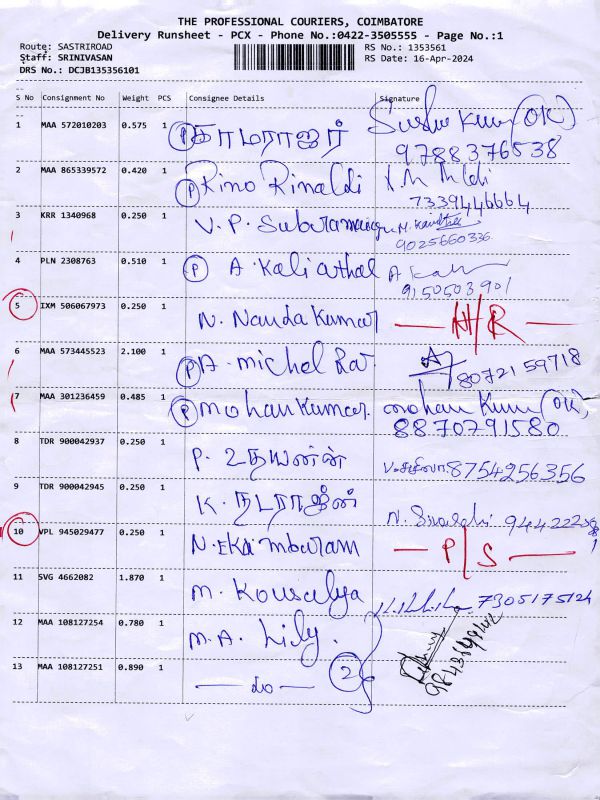 THE PROFESSIONAL COURIERS, COIMBATORE
Delivery Runsheet - PCX - Phone No.:0422-3505555 - Page No.:1
Route: SASTRIROAD RS No.: 1353561
Staff: SRINIVASAN RS Date: 16-Apr-2024
DRS No.: DCJB135356101
S No Consignment No Weight PCS Consignee Details Signature
1 MAA 572010203 0.575 1 (P) காமராஜர் (OK)
9788376538
2 MAA 865339572 0.420 1 (P) Rino Rinaldi
7339446664
3 KRR 1340968 0.250 1 V. P. Subramaniyan
9025660336
4 PLN 2308763 0.510 1 (P) A. Kaliathal A
9150503901
5 IXM 506067973 0.250 1 N. Nanda Kumar
6 MAA 573445523 2.100 1 (P) A. michel Raj
8072159718
7 MAA 301236459 0.485 1 (P) mohan Kumar. mohan Kumar (OK)
8870791580
8 TDR 900042937 0.250 1 P. உதயணன் 8754256356
9 TDR 900042945 0.250 1 K. நடராஜன்
10 VPL 945029477 0.250 1 N. Ekambaram P/S
11 SVG 4662082 1.870 1 M. Kousalya 7305175124
12 MAA 108127254 0.780 1 M. A. Lily.
13 MAA 108127251 0.890 1 — do — 2